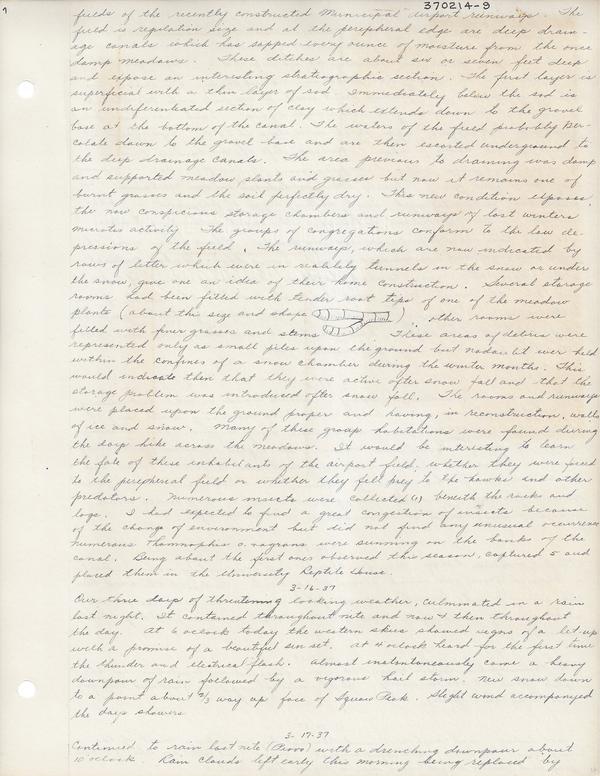 370214-9
fields of the recently constructed Municipal airport runways. The
field is regulation size and at the peripheral edge are deep drain-
age canals which has sapped every ounce of moisture from the once
damp meadows. These ditches are about six or seven feet deep
and expose an interesting stratiographic section. The first layer is
superficial with a thin layer of sod. Immediately below the sod is
an undifferentiated section of clay which extends down to the gravel
base at the bottom of the canal. The waters of the field probably per-
colate down to the gravel base and are then escorted underground to
the deep drainage canals. The area previous to draining was damp
and supported meadow plants and grasses but now it remains one of
burnt grasses and the soil perfectly dry. This new condition exposes
the now conspicuous storage chambers and runways of last winters
microtes activity. The groups of congregations conform to the low de-
pressions of the field. The runways, which are now indicated by
rows of litter which were in reality tunnels in the snow or under
the snow, give one an idea of their home construction. Several storage
rooms had been filled with tender root tips of one of the meadow
plants (about this size and shape ) other rooms were
filled with finer grasses and stems. These areas of debris were
represented only as small piles upon the ground but no doubt were held
within the confines of a snow chamber during the winter months. This
would indicate then that they were active after snow fall and that the
storage problem was introduced after snow fall. The rooms and runways
were placed upon the ground proper and having, in reconstruction, walls
of ice and snow. Many of these group habitations were found during
the days hike across the meadows. It would be interesting to learn
the fate of these inhabitants of the airport field, whether they were forced
to the peripheral field or whether they fell prey to the hawks and other
predators. Numerous insects were collected (1) beneath the rocks and
logs. I had expected to find a great congestion of insects because
of the change of environment but did not find any unusual occurrence
Numerous Thamnophis o. vagrans were sunning on the banks of the
canal. Being about the first ones observed this season, captured 5 and
placed them in the University Reptile House.
3-16-37
Our three days of threatening looking weather, culminated in a rain
last night. It continued throughout nite and now & then throughout
the day. At 6 oclock today the western skies showed signs of a let-up
with a promise of a beautiful sun set. At 4 oclock heard for the first time
the thunder and electrical flash. Almost instantaneously came a heavy
downpour of rain followed by a vigorous hail storm. New snow down
to a point about 2/3 way up face of Squaw Peak. Slight wind accompanyed
the days showers
3-17-37
Continued to rain last nite (Provo) with a drenching downpour about
10 oclock. Rain clouds left early this morning being replaced by